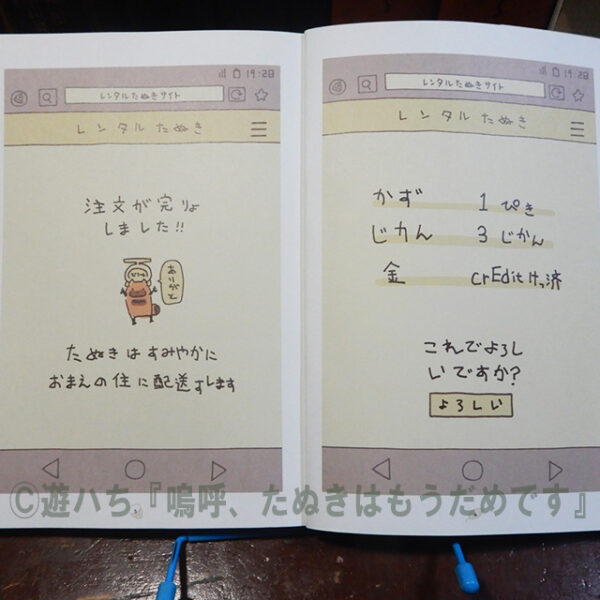 19:28
レンタルたぬきサイト
レンタルたぬき
かず 1ぴき
じカん 3じかん
金 crEditけっ済
これでよろし
いですか?
よろしい
19:28
レンタルたぬきサイト
レンタルたぬき
注文が完りょ
しました!!
ありがと
たぬきはすみやかに
おまえの住に配送すします
©遊ハち『嗚呼、たぬきはもうだめです』